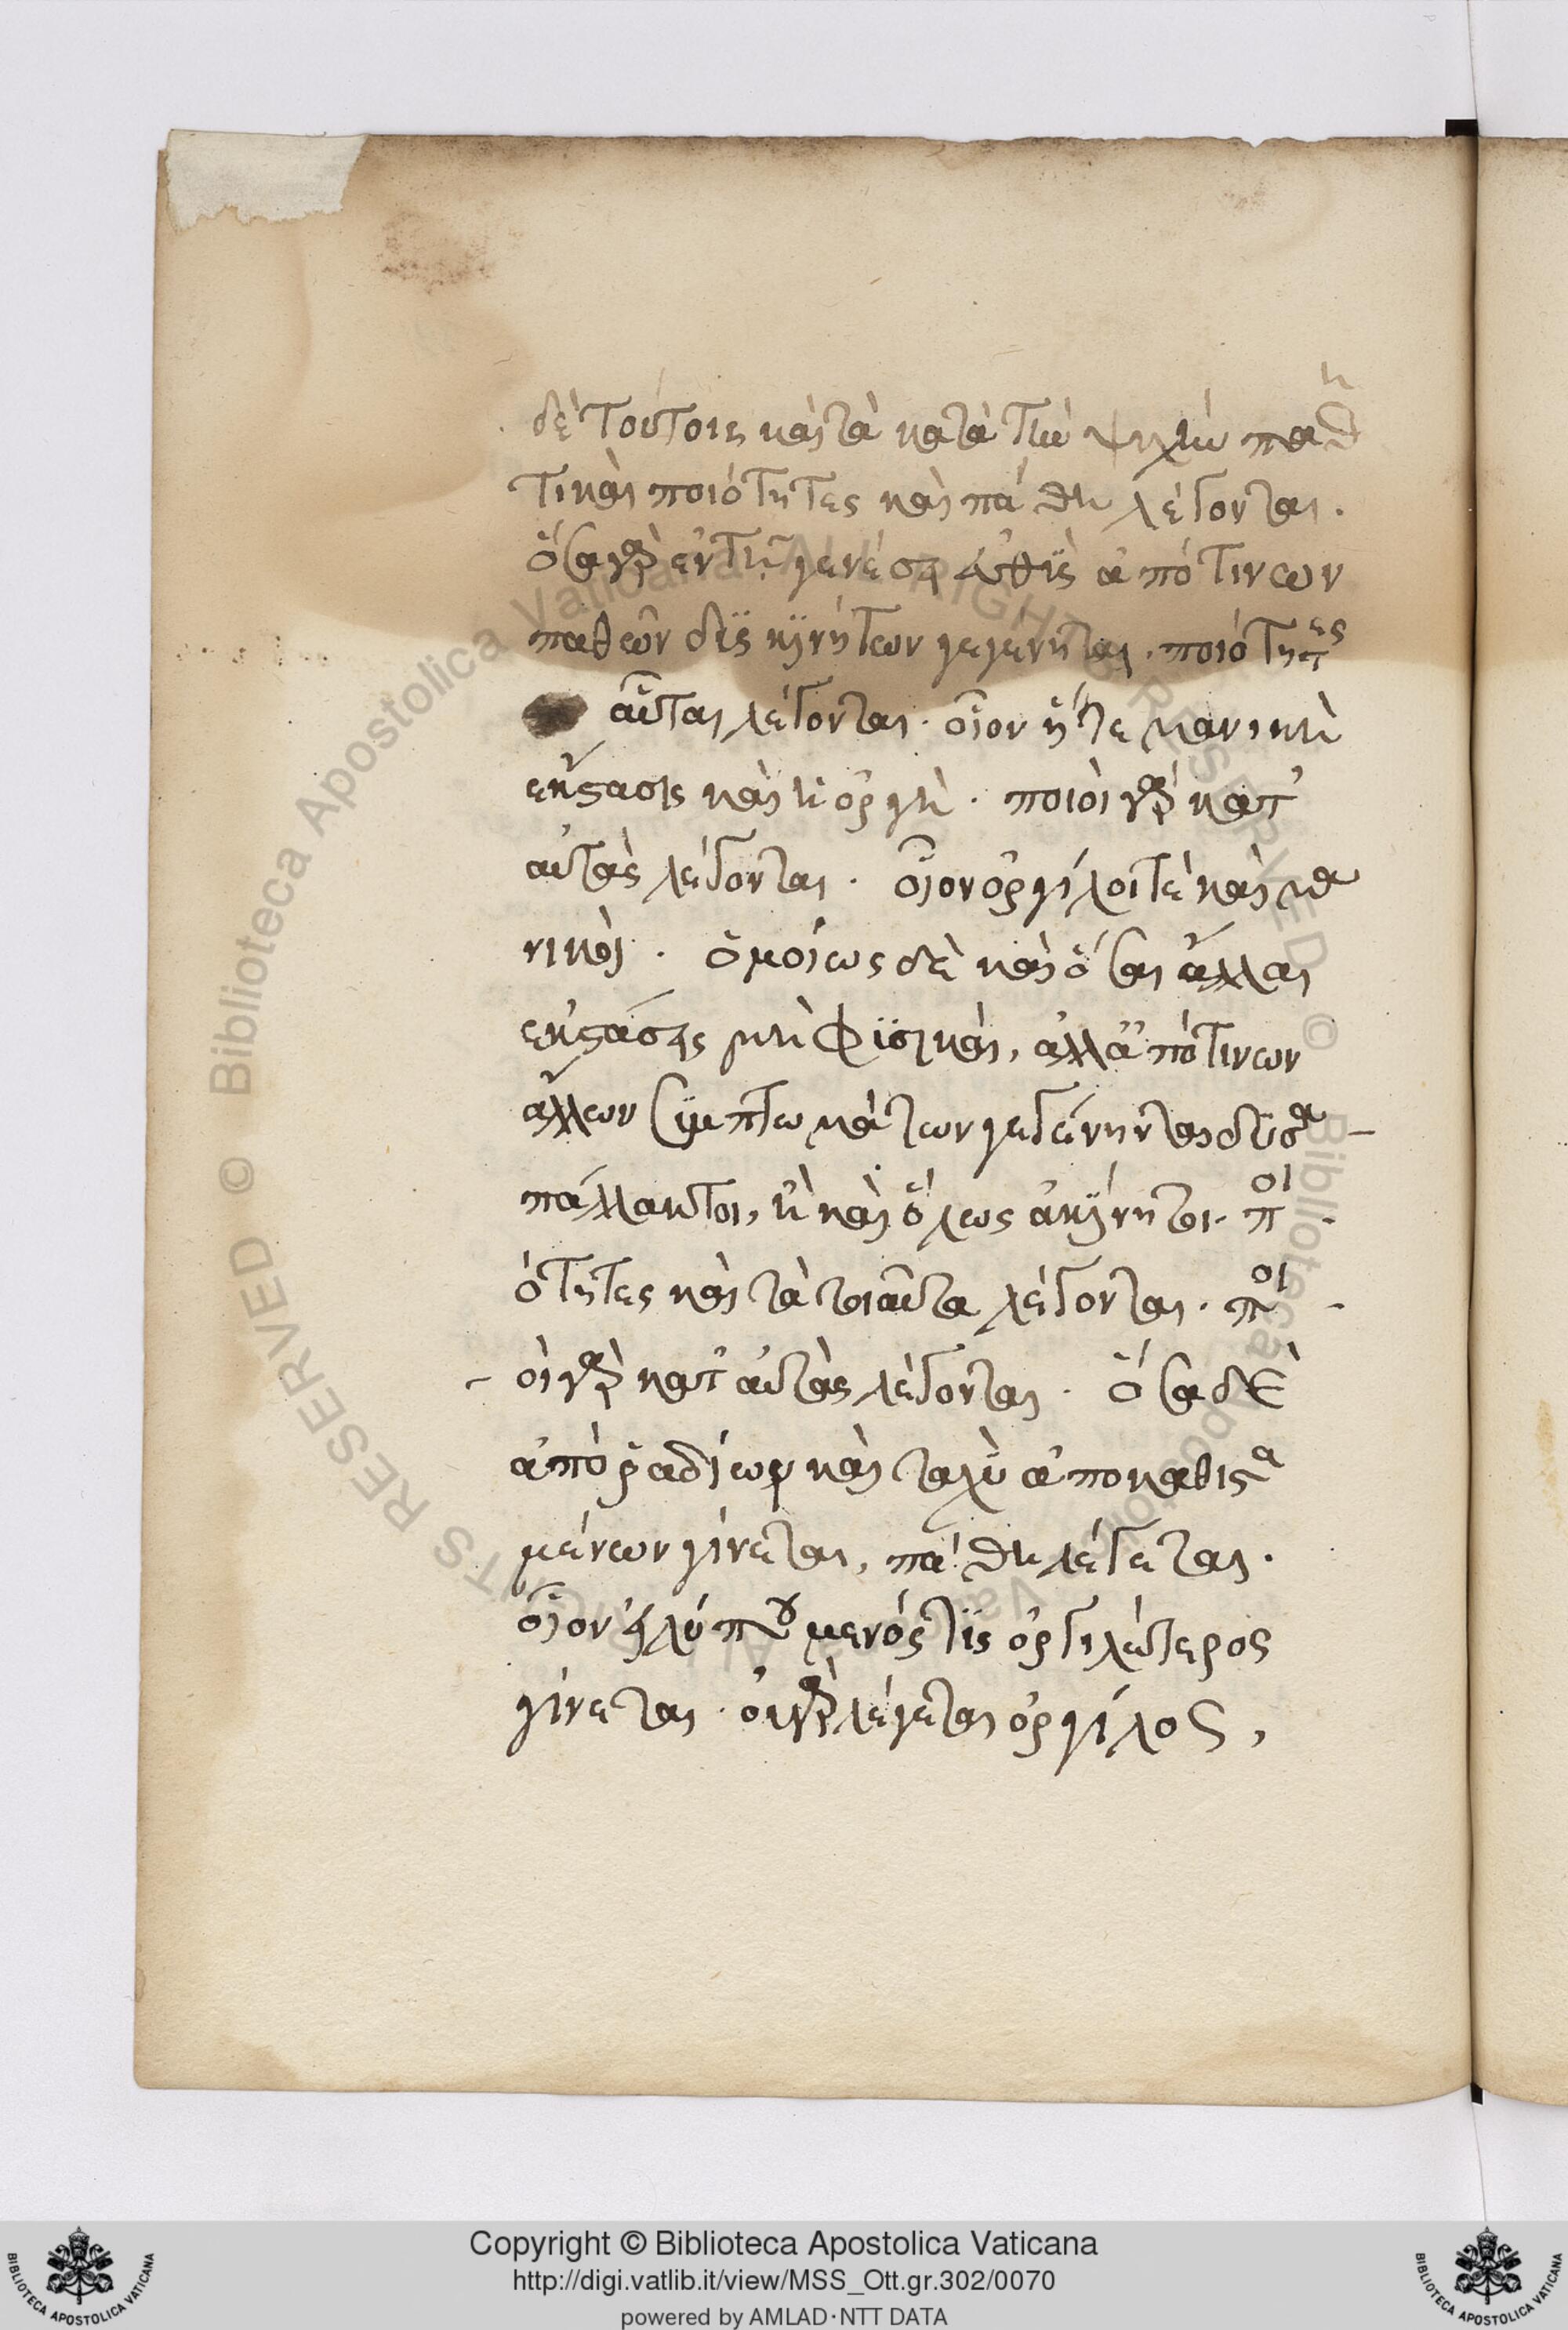 δὲ τούτοις καὶ τὰ κατὰ τὴν ψυχὴν παθη
τικαὶ ποιότητες καὶ πάθη λέγονται.
ὅσα γὰρ ἐν τῇ γενέσει εὐθὺς ἀπό τινων
παθῶν δυσκινήτων γεγένηται. ποιότητες
αὗται λέγονται. οἷον ἥ τε μανικὴ
ἔκστασις καὶ ἡ ὀργὴ. ποιοὶ γὰρ κατ'
αὐτὰς λέγονται. οἷον ὀργίλοι τὲ καὶ μα
νικοὶ. ὁμοίως δὲ καὶ ὅσαι ἄλλαι
ἐκστάσεις μὴ φυσικαὶ, ἀλλ' ἀπό τινων
ἄλλων συμπτωμάτων γεγένηνται δυσα
πάλλακτοι, ἢ καὶ ὅλως ἀκίνητοι. ποι
ότητες καὶ τὰ τοιαῦτα λέγονται. ποι
οὶ γὰρ κατ' αὐτὰς λέγονται. ὅσα δὲ
ἀπὸ ῥαδίων καὶ ταχὺ ἀποκαθιστα
μένων γίνεται, πάθη λέγεται.
οἷον εἰ λυπούμενός τις ὀργιλώτερος
γίνεται. οὐ γὰρ λέγεται ὀργίλος,
Copyright © Biblioteca Apostolica Vaticana
http://digi.vatlib.it/view/MSS_Ott.gr.302/0070
powered by AMLAD·NTT DATA